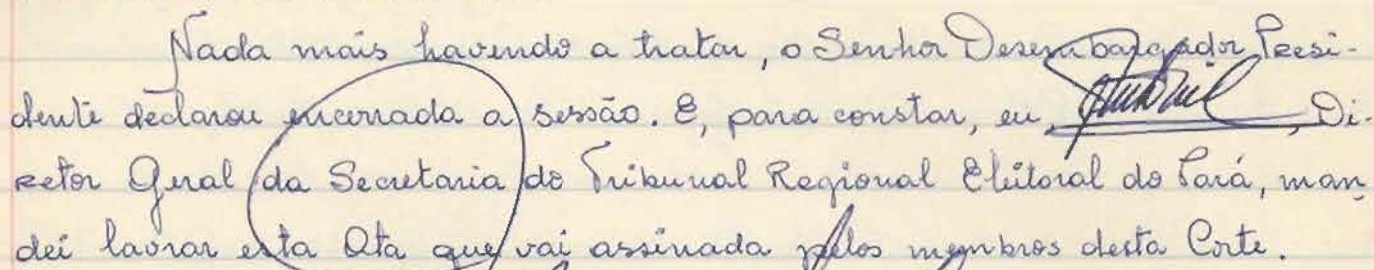 Nada mais havendo a tratar, o Senhor Desembargador Presi-
dente declarou encerrada a sessão. E, para constar, eu, , Di-
retor Geral da Secretaria do Tribunal Regional Eleitoral do Pará, man
dei lavrar esta Ata que vai assinada pelos membros desta Corte.